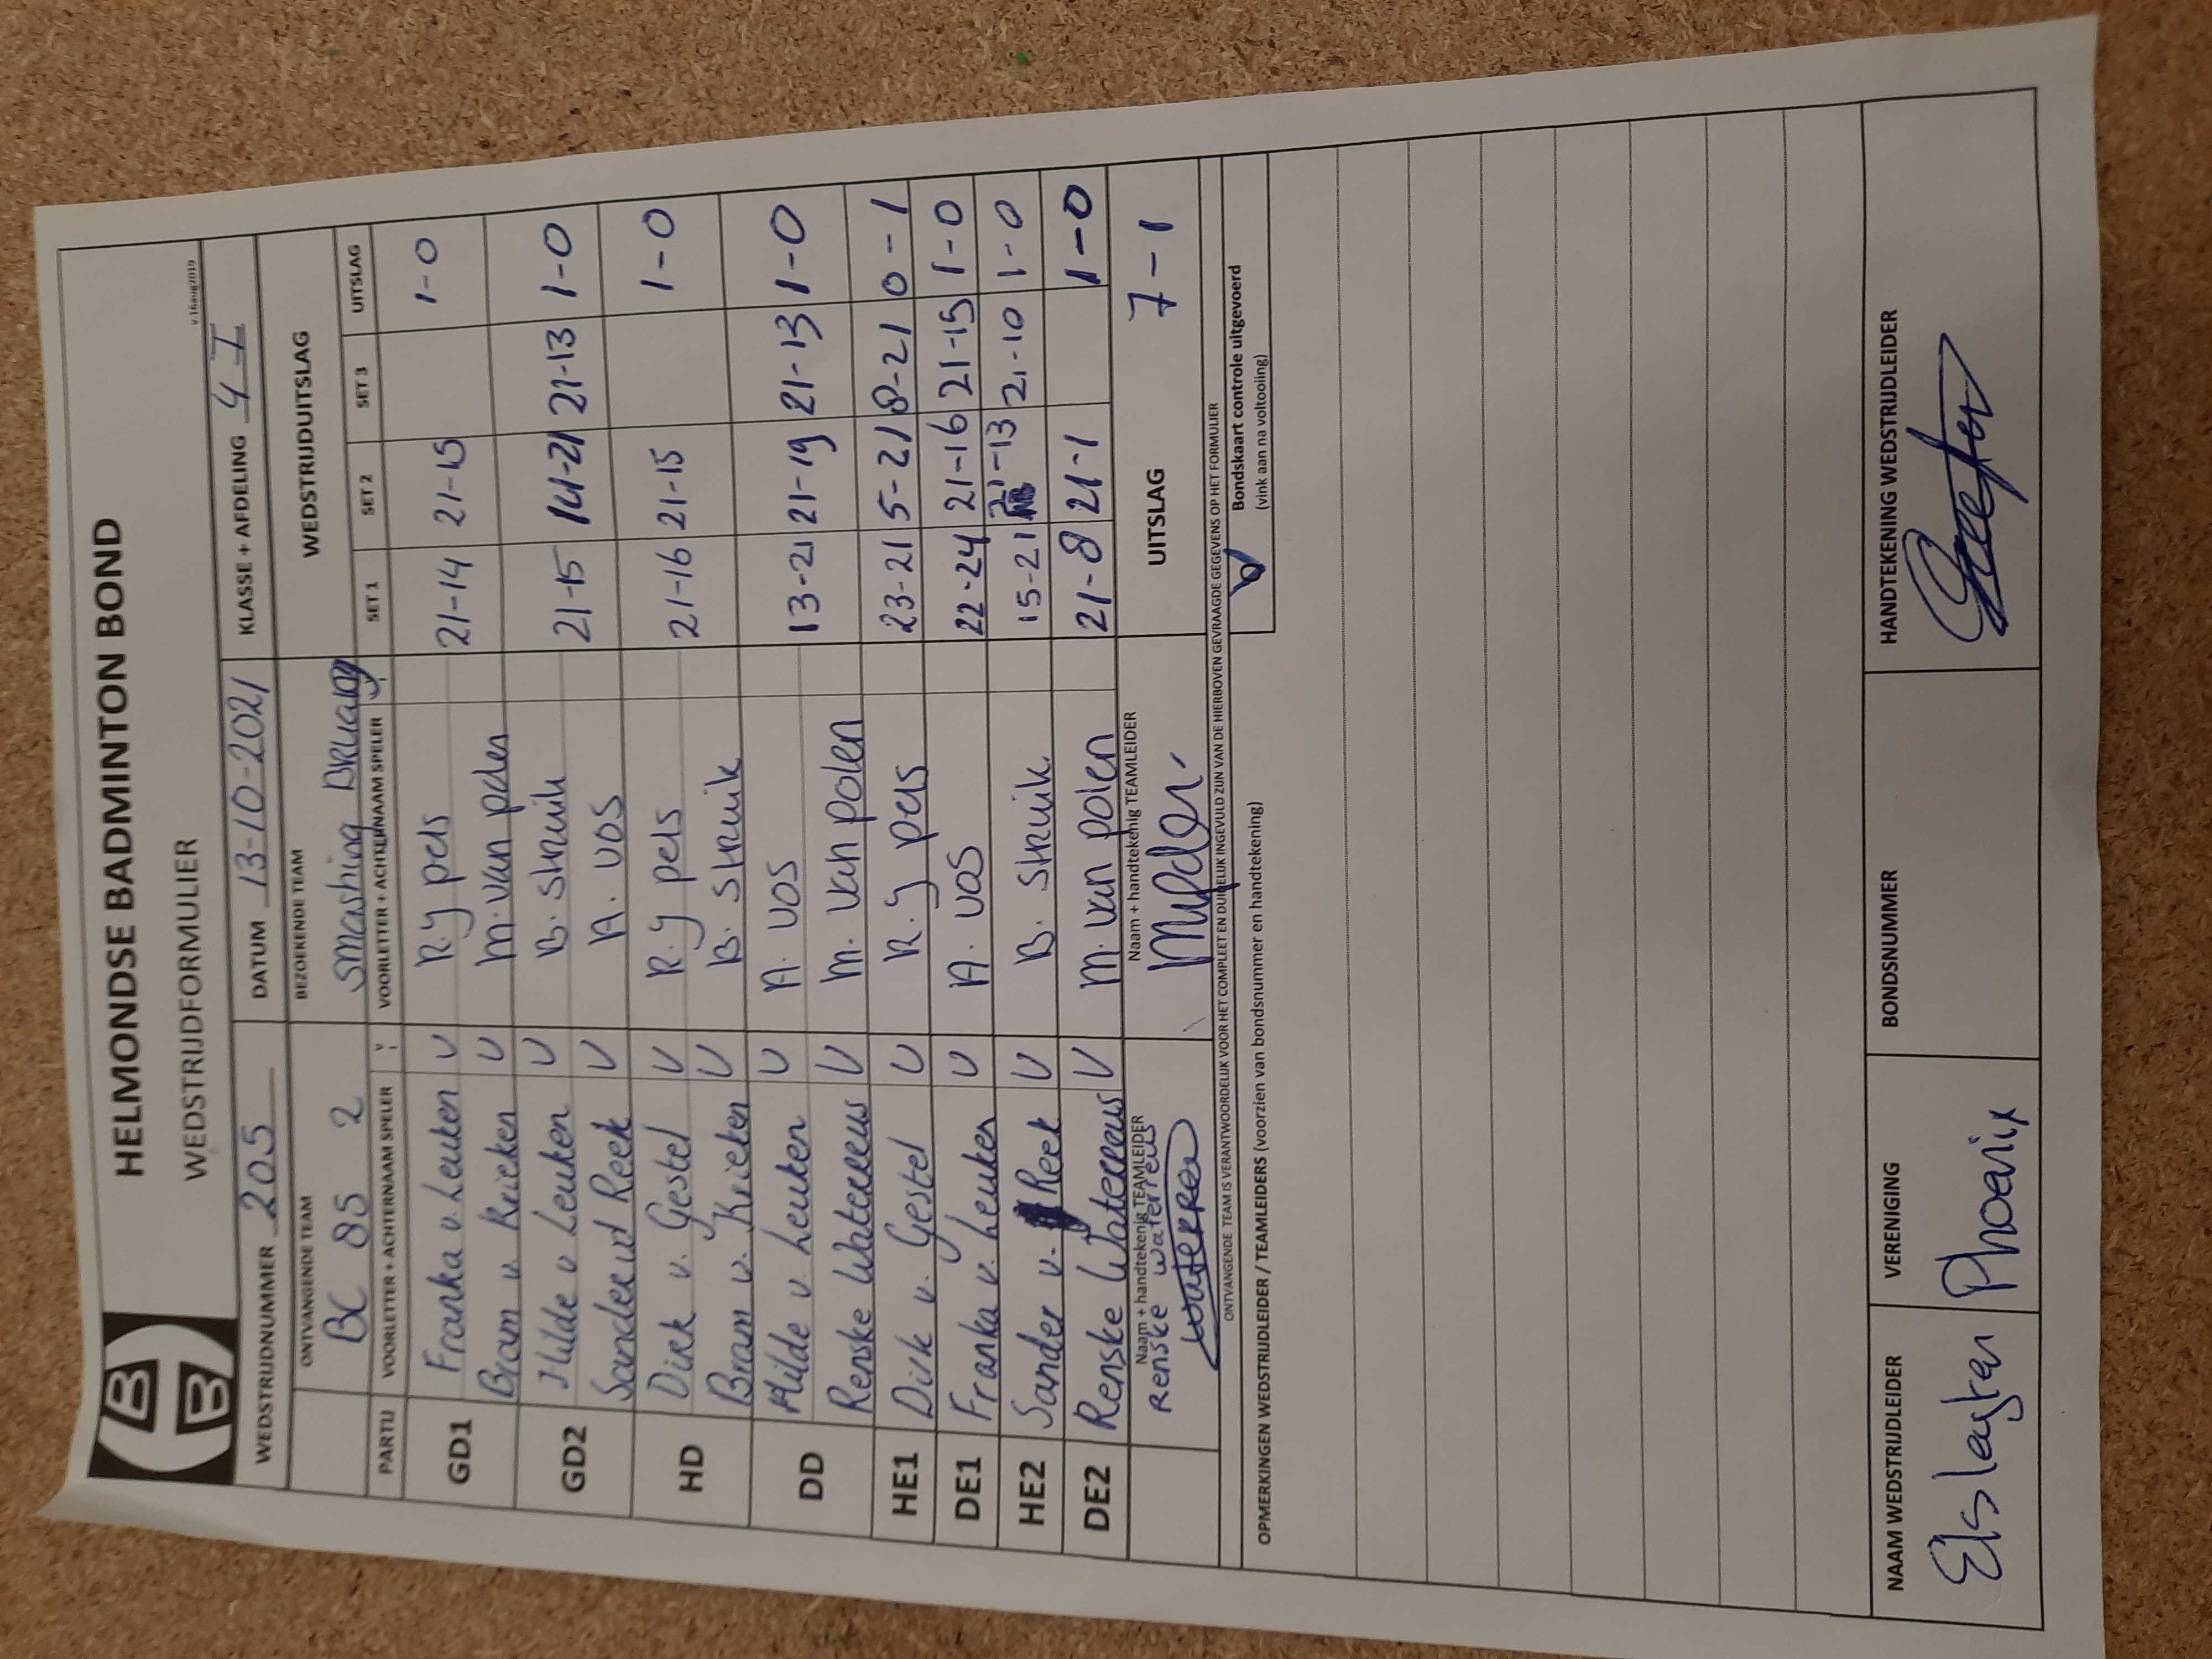 HELMONDSE BADMINTON BOND
HBB
WEDSTRIJDFORMULIER
v.16aug2019
WEDSTRIJDNUMMER 205 DATUM 13-10-2021 KLASSE + AFDELING 4 I
ONTVANGENDE TEAM BEZOEKENDE TEAM WEDSTRIJDUITSLAG
BC 85 2 Smashing
PARTIJ VOORLETTER + ACHTERNAAM SPELER V VOORLETTER + ACHTERNAAM SPELER V SET 1 SET 2 SET 3 UITSLAG
GD1 Franka v. Leuken V R.y pels 21-14 21-15 1-0
Bram v. Krieken V M. van polen
GD2 Hilde v Leuken V B. Struik 21-15 14-21 21-13 1-0
Sander vd Reek V A. vos
HD Dirk v. Gestel V R.y pels 21-16 21-15 1-0
Bram v. Krieken V B. Struik
DD Hilde v. Leuken V A. vos 13-21 21-19 21-13 1-0
Renske Waterreus V M. van polen
HE1 Dirk v. Gestel V R.y pels 23-21 5-21 8-21 0-1
DE1 Franka v. Leuken V A. vos 22-24 21-16 21-15 1-0
HE2 Sander v. Reek V B. Struik. 15-21 21-13 21-10 1-0
DE2 Renske Waterreus V M. van polen 21-8 21-1 1-0
Naam + handtekenig TEAMLEIDER Naam + handtekenig TEAMLEIDER UITSLAG 7-1
Renske Waterreus
ONTVANGENDE TEAM IS VERANTWOORDELIJK VOOR HET COMPLEET EN DUIDELIJK INGEVULD ZIJN VAN DE HIERBOVEN GEVRAAGDE GEGEVENS OP HET FORMULIER
Bondskaart controle uitgevoerd
(vink aan na voltooiing)
OPMERKINGEN WEDSTRIJDLEIDER / TEAMLEIDERS (voorzien van bondsnummer en handtekening)
NAAM WEDSTRIJDLEIDER VERENIGING BONDSNUMMER HANDTEKENING WEDSTRIJDLEIDER
Els Phoenix